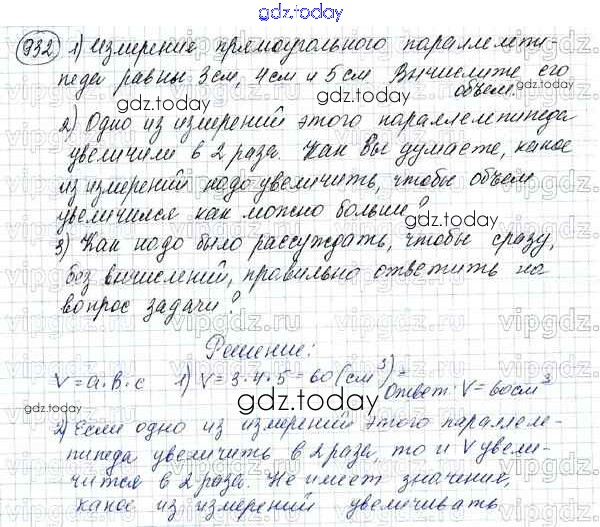 gdz.today
932 1) Измерения прямоугольного параллелепи-
педа равны 3см, 4см и 5см. Вычислите его
объем.
gdz.today
gdz.today
2) Одно из измерений этого параллелепипеда
увеличили в 2 раза. Как вы думаете, какое
из измерений надо увеличить, чтобы объем
увеличился как можно больше?
gdz.today
gdz.today
3) Как надо было рассуждать, чтобы сразу,
без вычислений, правильно ответить на
вопрос задачи?
gdz.today
Решение:
V = a·b·c 1) V = 3·4·5 = 60 (см³)
Ответ: V = 60см³
gdz.today
2) Если одно из измерений этого параллеле-
пипеда увеличить в 2 раза, то и V увели-
чится в 2 раза. Не имеет значения,
какое из измерений увеличивать.
gdz.today
gdz.today